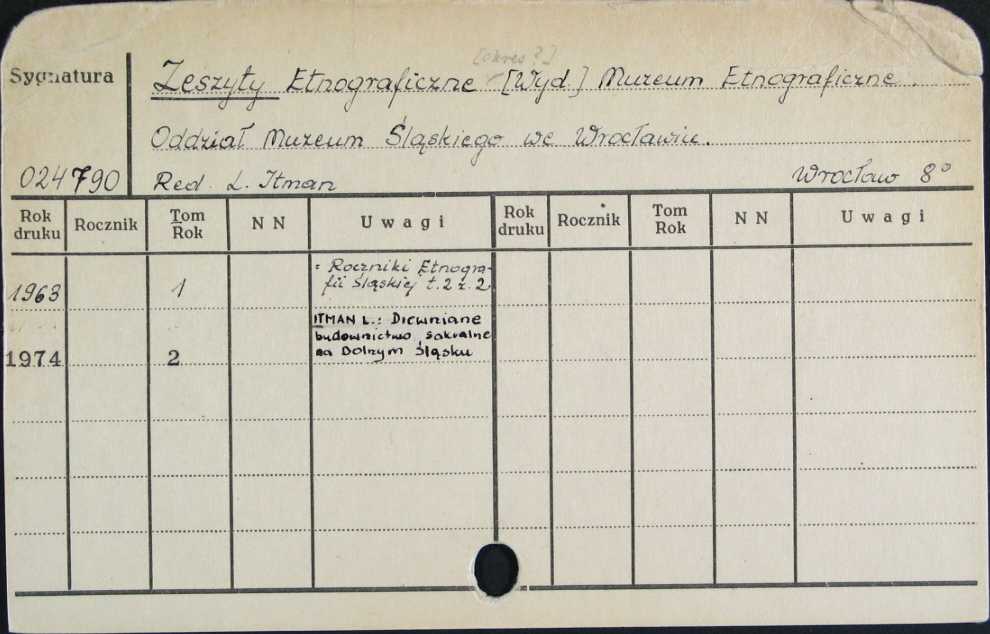 [okres?]
Sygnatura
Zeszyty Etnograficzne [Wyd.] Muzeum Etnograficzne.
Oddział Muzeum Śląskiego we Wrocławiu.
024790 Red. L. Itman Wrocław 8°
Rok druku Rocznik Tom Rok NN Uwagi Rok druku Rocznik Tom Rok NN Uwagi
= Roczniki Etnogra-
1963 1 fii Śląskiej t. 2 z. 2
ITMAN L.: Drewniane
budownictwo sakralne
1974 2 na Dolnym Śląsku